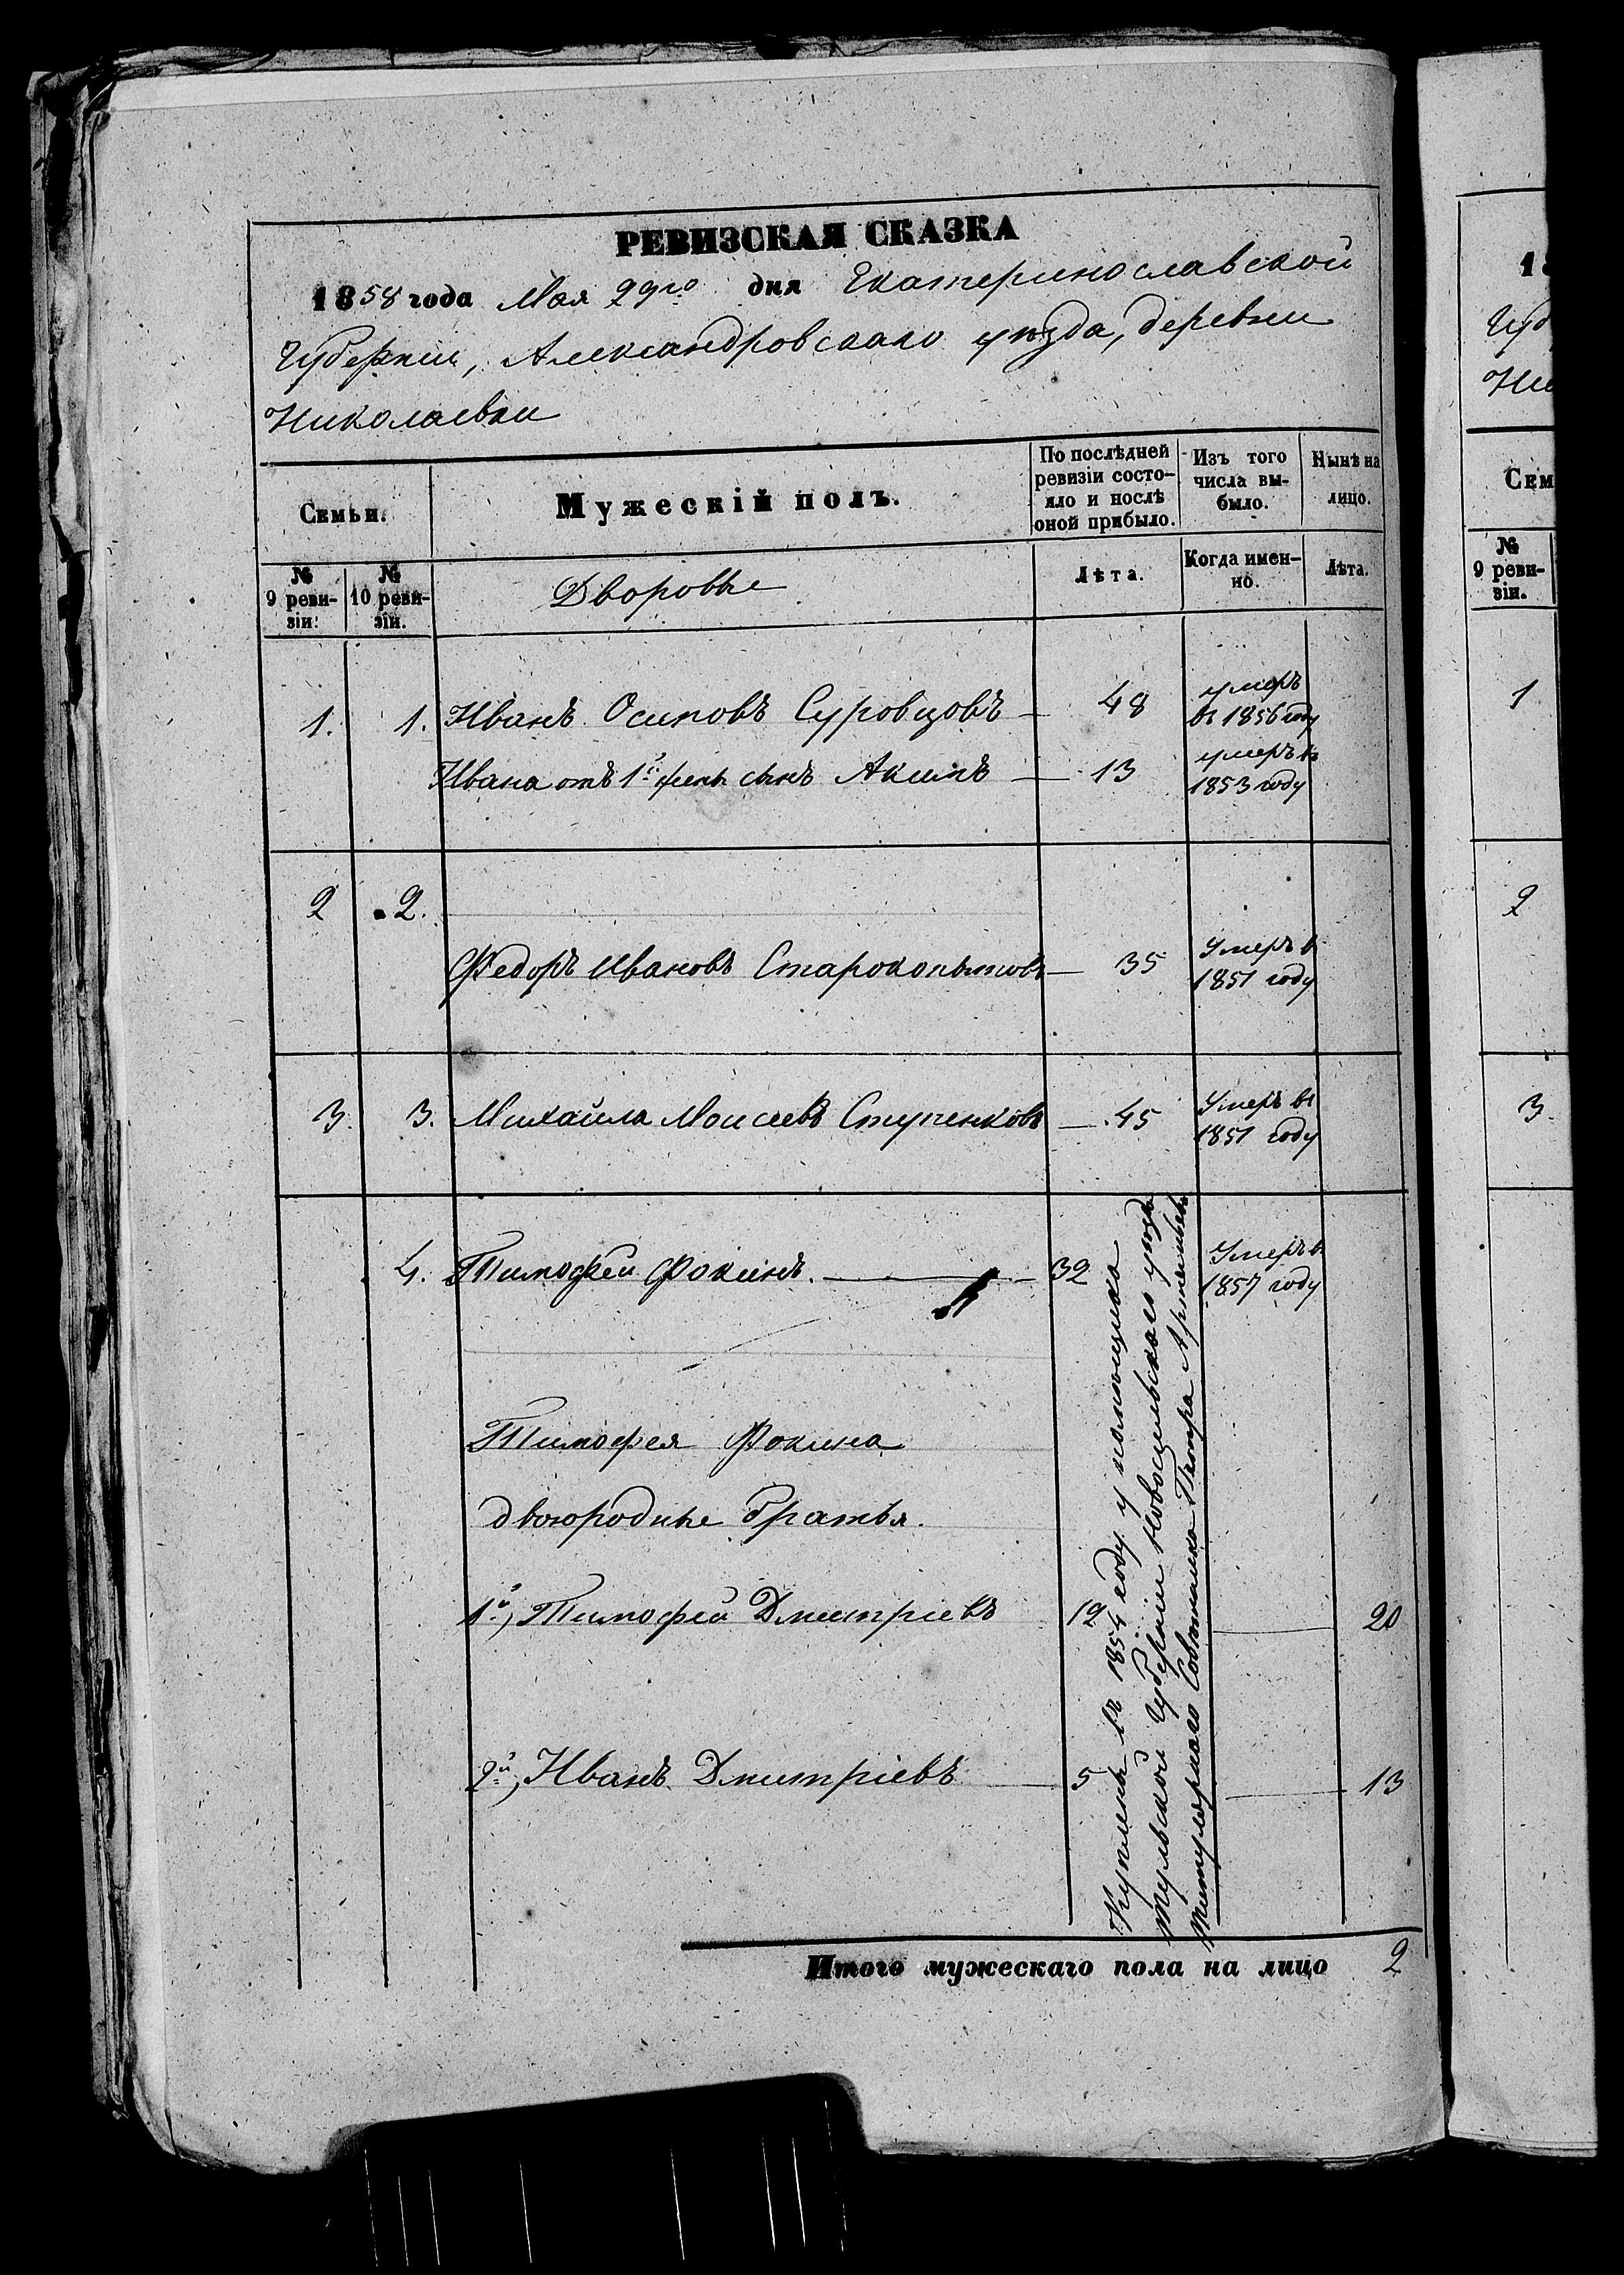 РЕВИЗСКАЯ СКАЗКА
1858 года Мая 29го дня Екатеринославской
Губерніи, Александровскаго уѣзда, деревни
Николаевки
Семьи.
Мужескій полъ.
По послѣдней
ревизіи состо-
яло и послѣ
оной прибыло.
Изъ того
числа вы-
было.
Нынѣ на
лицо.
№
9 реви-
зіи.
№
10 реви-
зіи.
Дворовые
Лѣта.
Когда имен-
но.
Лѣта.
1. 1. Иванъ Осиповъ Суровцовъ 48 умеръ
въ 1856 году
Ивана отъ 1й жены сынъ Акимъ 13 умеръ въ
1853 году
2 2.
Федоръ Ивановъ Старокопытовъ 35 Умеръ в
1851 году
3. 3. Михайла Моисеевъ Ступенковъ 45 Умеръ въ
1851 году
4. Тимофей Фокинъ. 32 Умеръ в
1857 году
Тимофея Фокина
двоюродные братья.
1й, Тимофей Дмитріевъ 12 20
2й, Иванъ Дмитріевъ 5 13
Куплены въ 1854 году у помощика
Тульской Губерніи Новосильскаго уезда
Титулярнаго Советника Петра
Итого мужескаго пола на лицо 2
1
Губ
Ни
Сем
№
9 реви-
зіи.
1
2
3.